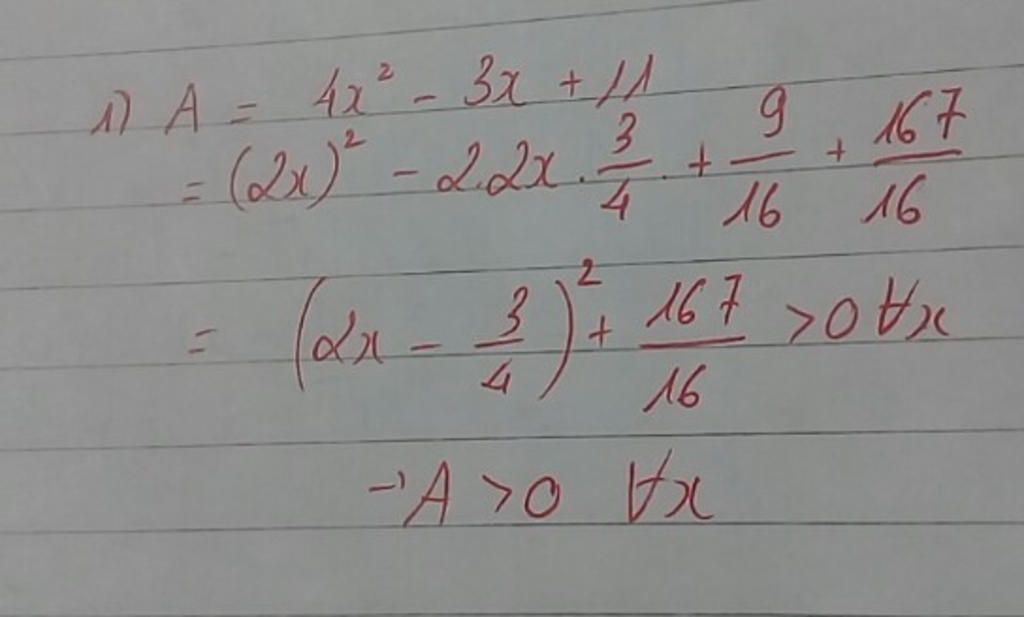 1) A = 4x² - 3x + 11
= (2x)² - 2.2x . 3/4 + 9/16 + 167/16
= (2x - 3/4)² + 167/16 > 0 ∀x
→ A > 0 ∀x